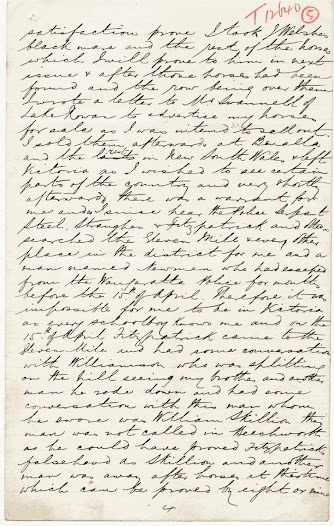 T 12640 (5)
satisfaction prove I took J Welshe
black mare and the rest of the horses
which I will prove to him in next
issue & after those horses had been
found and the row being over them
I wrote a letter to Mr Swannell of
Lake Rowan to advertise my horses
for sale as I was intend to sell out
I sold them afterwards at Benalla
and the rest in New South Wales & left
Victoria as I wished to see certain
parts of the country and very shortly
afterwards there was a warrant for
me and since hear the Police Sergeant
Steel, Straughan & Fitzpatrick and others
searched the Eleven Mile & every other
place in the district for me and a
man named Newman who had escaped
from the Wangaratta Police for months
before the 15 of April. Therefore it was
impossible for me to be in Victoria
as every schoolboy knows me and on the
15 of April Fitzpatrick came to the
Eleven Mile and had some conversation
with Williamson who was splitting
on the hill seeing my brother and another
man he rode down and had some
conversation with this man whom
he swore was William Skillion this
man was not called in Beechworth
as he could have proved Fitzpatricks
falsehood as Skillion and another
man was away after horses at this time
which can be proved by eight or nine
4